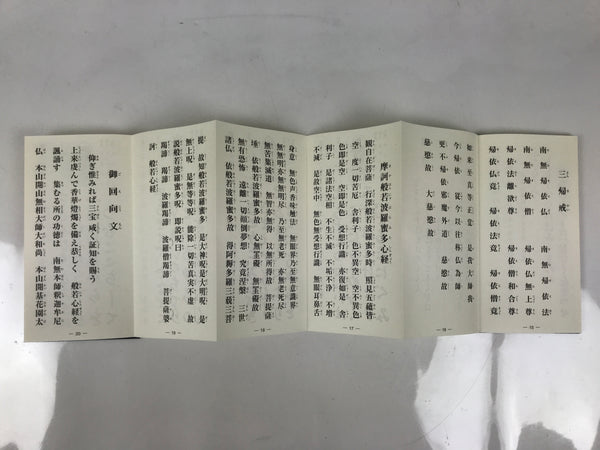 三帰戒
南無帰依仏　南無帰依法
南無帰依僧　帰依仏無上尊
帰依法離欲尊　帰依僧和合尊
帰依仏竟　帰依法竟　帰依僧竟
— 15 —
如来至真等正覚　是我大師我
今帰依　従今以往称仏為師
更不帰依　邪魔外道　慈愍故
慈愍故　大慈愍故
摩訶般若波羅蜜多心経
観自在菩薩　行深般若波羅蜜多時　照見五蘊皆
空　度一切苦厄　舎利子　色不異空　空不異色
色即是空　空即是色　受想行識　亦復如是　舎
利子　是諸法空相　不生不滅　不垢不浄　不増
不減　是故空中　無色無受想行識　無眼耳鼻舌
— 17 —
身意　無色声香味触法　無眼界乃至無意識界
無無明亦無無明尽　乃至無老死　亦無老死尽
無苦集滅道　無智亦無得　以無所得故　菩提薩
埵　依般若波羅蜜多故　心無罣礙　無罣礙故
無有恐怖　遠離一切顛倒夢想　究竟涅槃　三世
諸仏　依般若波羅蜜多故　得阿耨多羅三藐三菩
— 18 —
提　故知般若波羅蜜多　是大神呪是大明呪　是
無上呪　是無等等呪　能除一切苦真実不虚　故
説般若波羅蜜多呪　即説呪曰
羯諦　羯諦　波羅羯諦　波羅僧羯諦　菩提薩婆
訶　般若心経
— 19 —
御回向文
仰ぎ惟みれば三宝咸く証知を賜う
上来虔んで香華燈燭を備え恭しく　般若心経を
諷誦す　集むる所の功徳は　南無本師釈迦牟尼
仏　本山開山無相大師大和尚　本山開基花園太
— 20 —